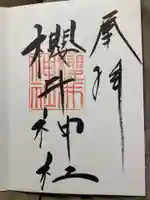 奉拝
櫻井神社